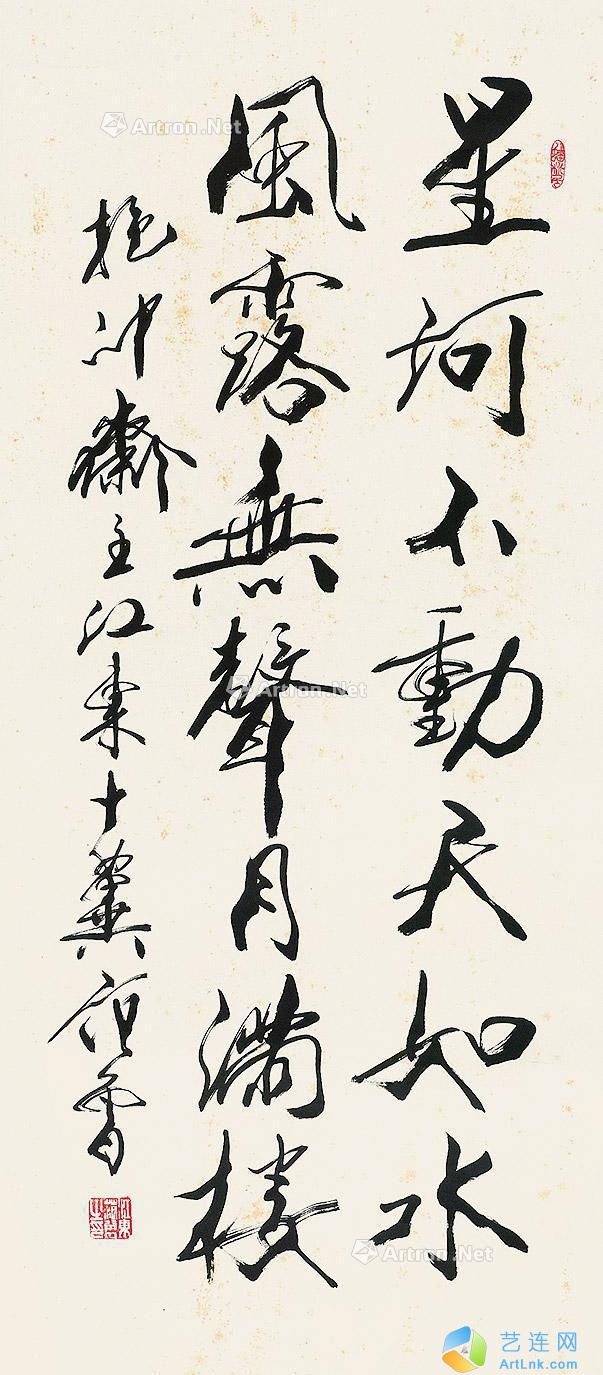 星河不動天如水
風露無聲月滿樓
抱冲齋主江東十翼范曾
Artron.Net
Artron.Net
Artron.Net
艺连网
ArtLnk.com